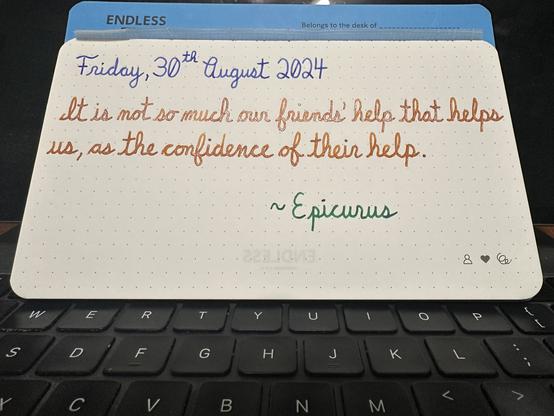 ENDLESS
Belongs to the desk of
Friday, 30th August 2024
It is not so much our friends' help that helps
us, as the confidence of their help.
~ Epicurus
ENDLESS
W E R T Y U I O P {
[
S D F G H J K L :
;
X C V B N M < >